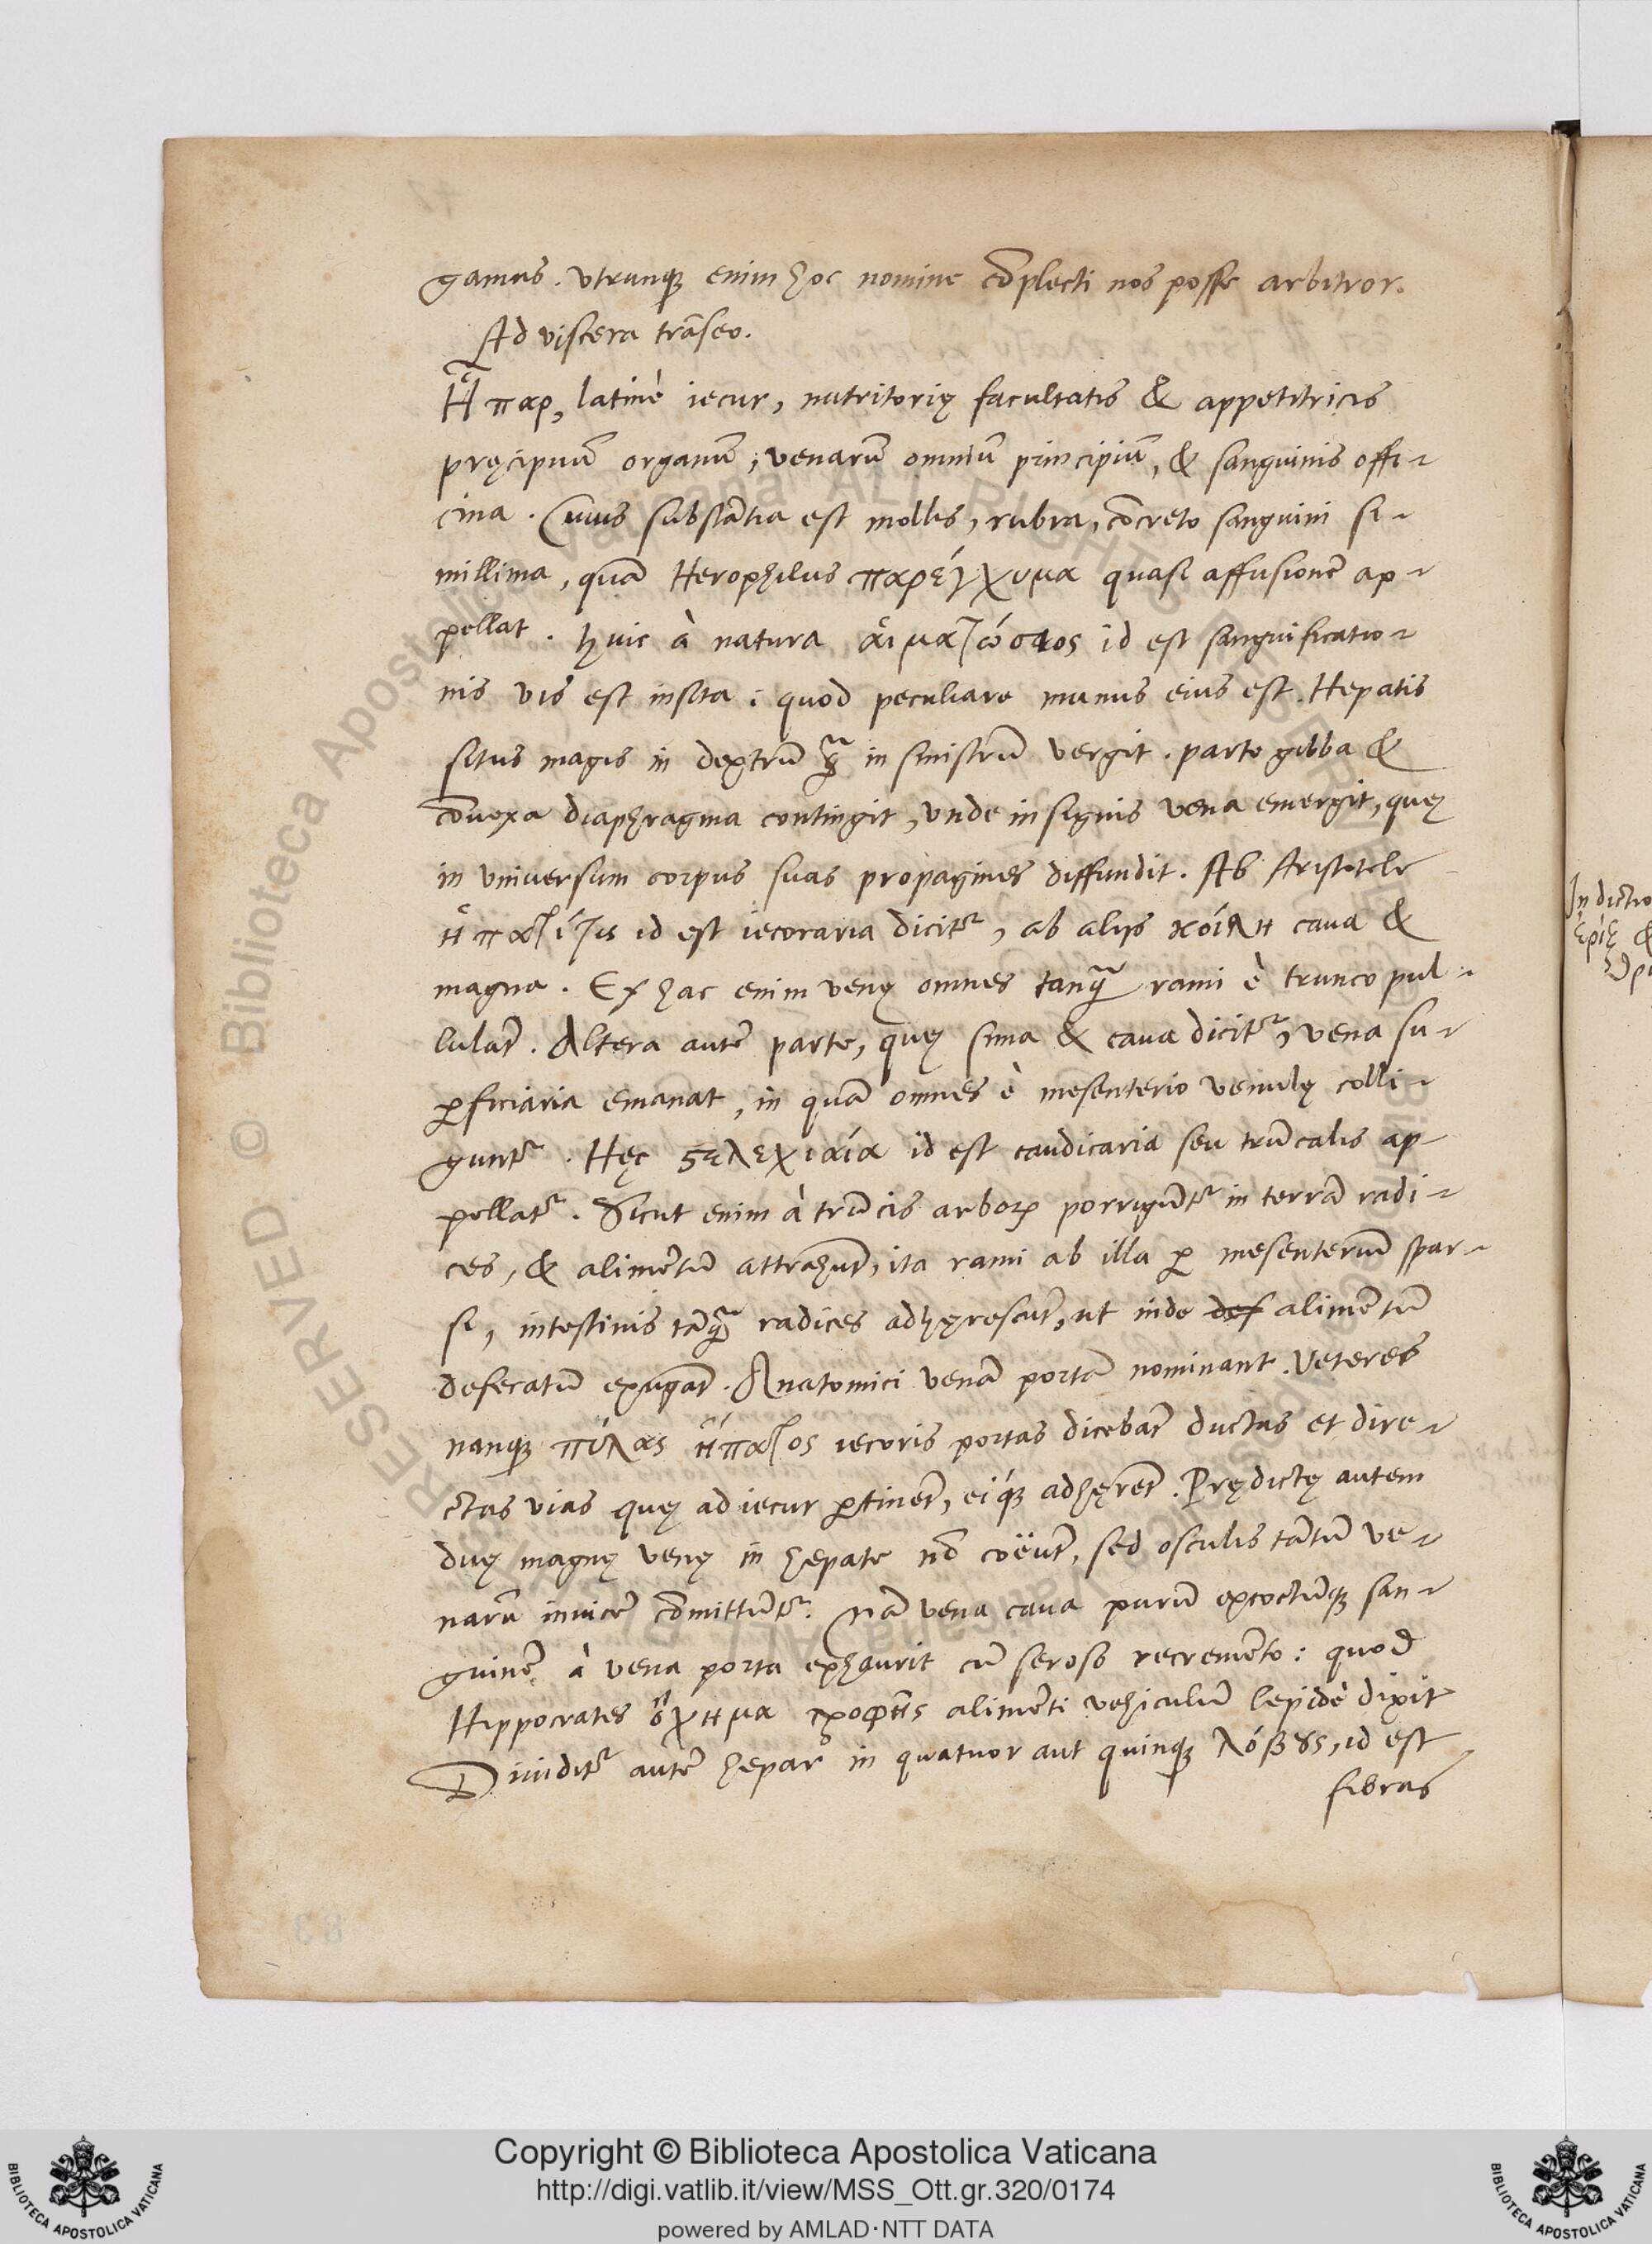 gamus. Vtrunq; enim hoc nomine cõplecti nos posse arbitror.
Ad viscera trãseo.
Ἧπαρ, latinè iecur, nutritorię facultatis & appetitricis
pręcipuũ organũ, venarũ omniũ principiũ, & sanguinis offi-
cina. Cuius substãtia est mollis, rubra, cõcreto sanguini si-
millima, quã Herophilus παρέγχυμα quasi affusionẽ ap-
pellat. huic à natura αἱματώσεως id est sanguificatio-
nis vis est insita: quod peculiare munus eius est. Hepatis
situs magis in dextrũ q̃ in sinistrũ vergit. parte gibba &
cõuexa diaphragma contingit, vnde insignis vena emergit, quę
in vniuersum corpus suas propagines diffundit. Ab Aristotele
ἡπατίτις id est iecoraria dicit᷑, ab alijs κοίλη caua &
magna. Ex hac enim venę omnes tanq̃ rami è trunco pul-
lulãt. Altera autẽ parte, quę sima & caua dicit᷑, vena su-
ꝑficiaria emanat, in quã omnes è mesenterio venulę colli-
gunt᷑. Hęc ϛελεχιαία id est caudicaria seu trũcalis ap-
pellat᷑. Sicut enim à trũcis arborꝝ porrigũt᷑ in terrã radi-
ces, & alimẽtũ attrahũt, ita rami ab illa ꝑ mesenteriũ spar-
si, intestinis tãq̃ radices adhęrescũt, ut inde def alimẽtũ
defecatũ exugãt. Anatomici venã portã nominant. Veteres
nanq; πύλας ἥπατος iecoris portas dicebãt ductus et dire-
ctas vias quę ad iecur ꝑtinẽt, eiq́; adhęrẽt. Prędictę autem
duę magnę venę in hepate nõ coëũt, sed osculis tãtũ ve-
narũ inuicẽ cõmittũt᷑. Nã vena caua purũ excoctũq; san-
guinẽ à vena porta exhaurit cũ seroso recremẽto: quod
Hippocrates ὄχημα τροφῆς alimẽti vehiculũ lepidè dixit
Diuidit᷑ autẽ hepar in quatuor aut quinq; λόβȣς, id est
fibras
In dictio
Copyright © Biblioteca Apostolica Vaticana
http://digi.vatlib.it/view/MSS_Ott.gr.320/0174
powered by AMLAD·NTT DATA